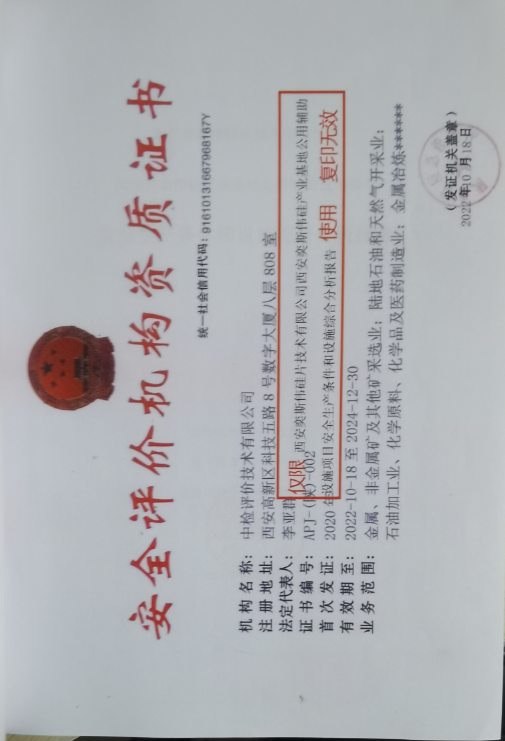 安全评价机构资质证书
统一社会信用代码：91610131667968167Y
机构名称：中检评价技术有限公司
注册地址：西安高新区科技五路8号数字大厦八层808室
法定代表人：李亚群
证书编号：APJ-(陕)-002
首次发证：2020
有效期至：2022-10-18 至 2024-12-30
业务范围：金属、非金属矿及其他矿采选业；陆地石油和天然气开采业；
石油加工业、化学原料、化学品及医药制造业；金属冶炼******
仅限 西安奕斯伟硅片技术有限公司西安奕斯伟硅产业基地公用辅助
设施项目安全生产条件和设施综合分析报告 使用 复印无效
（发证机关盖章）
2022年10月18日